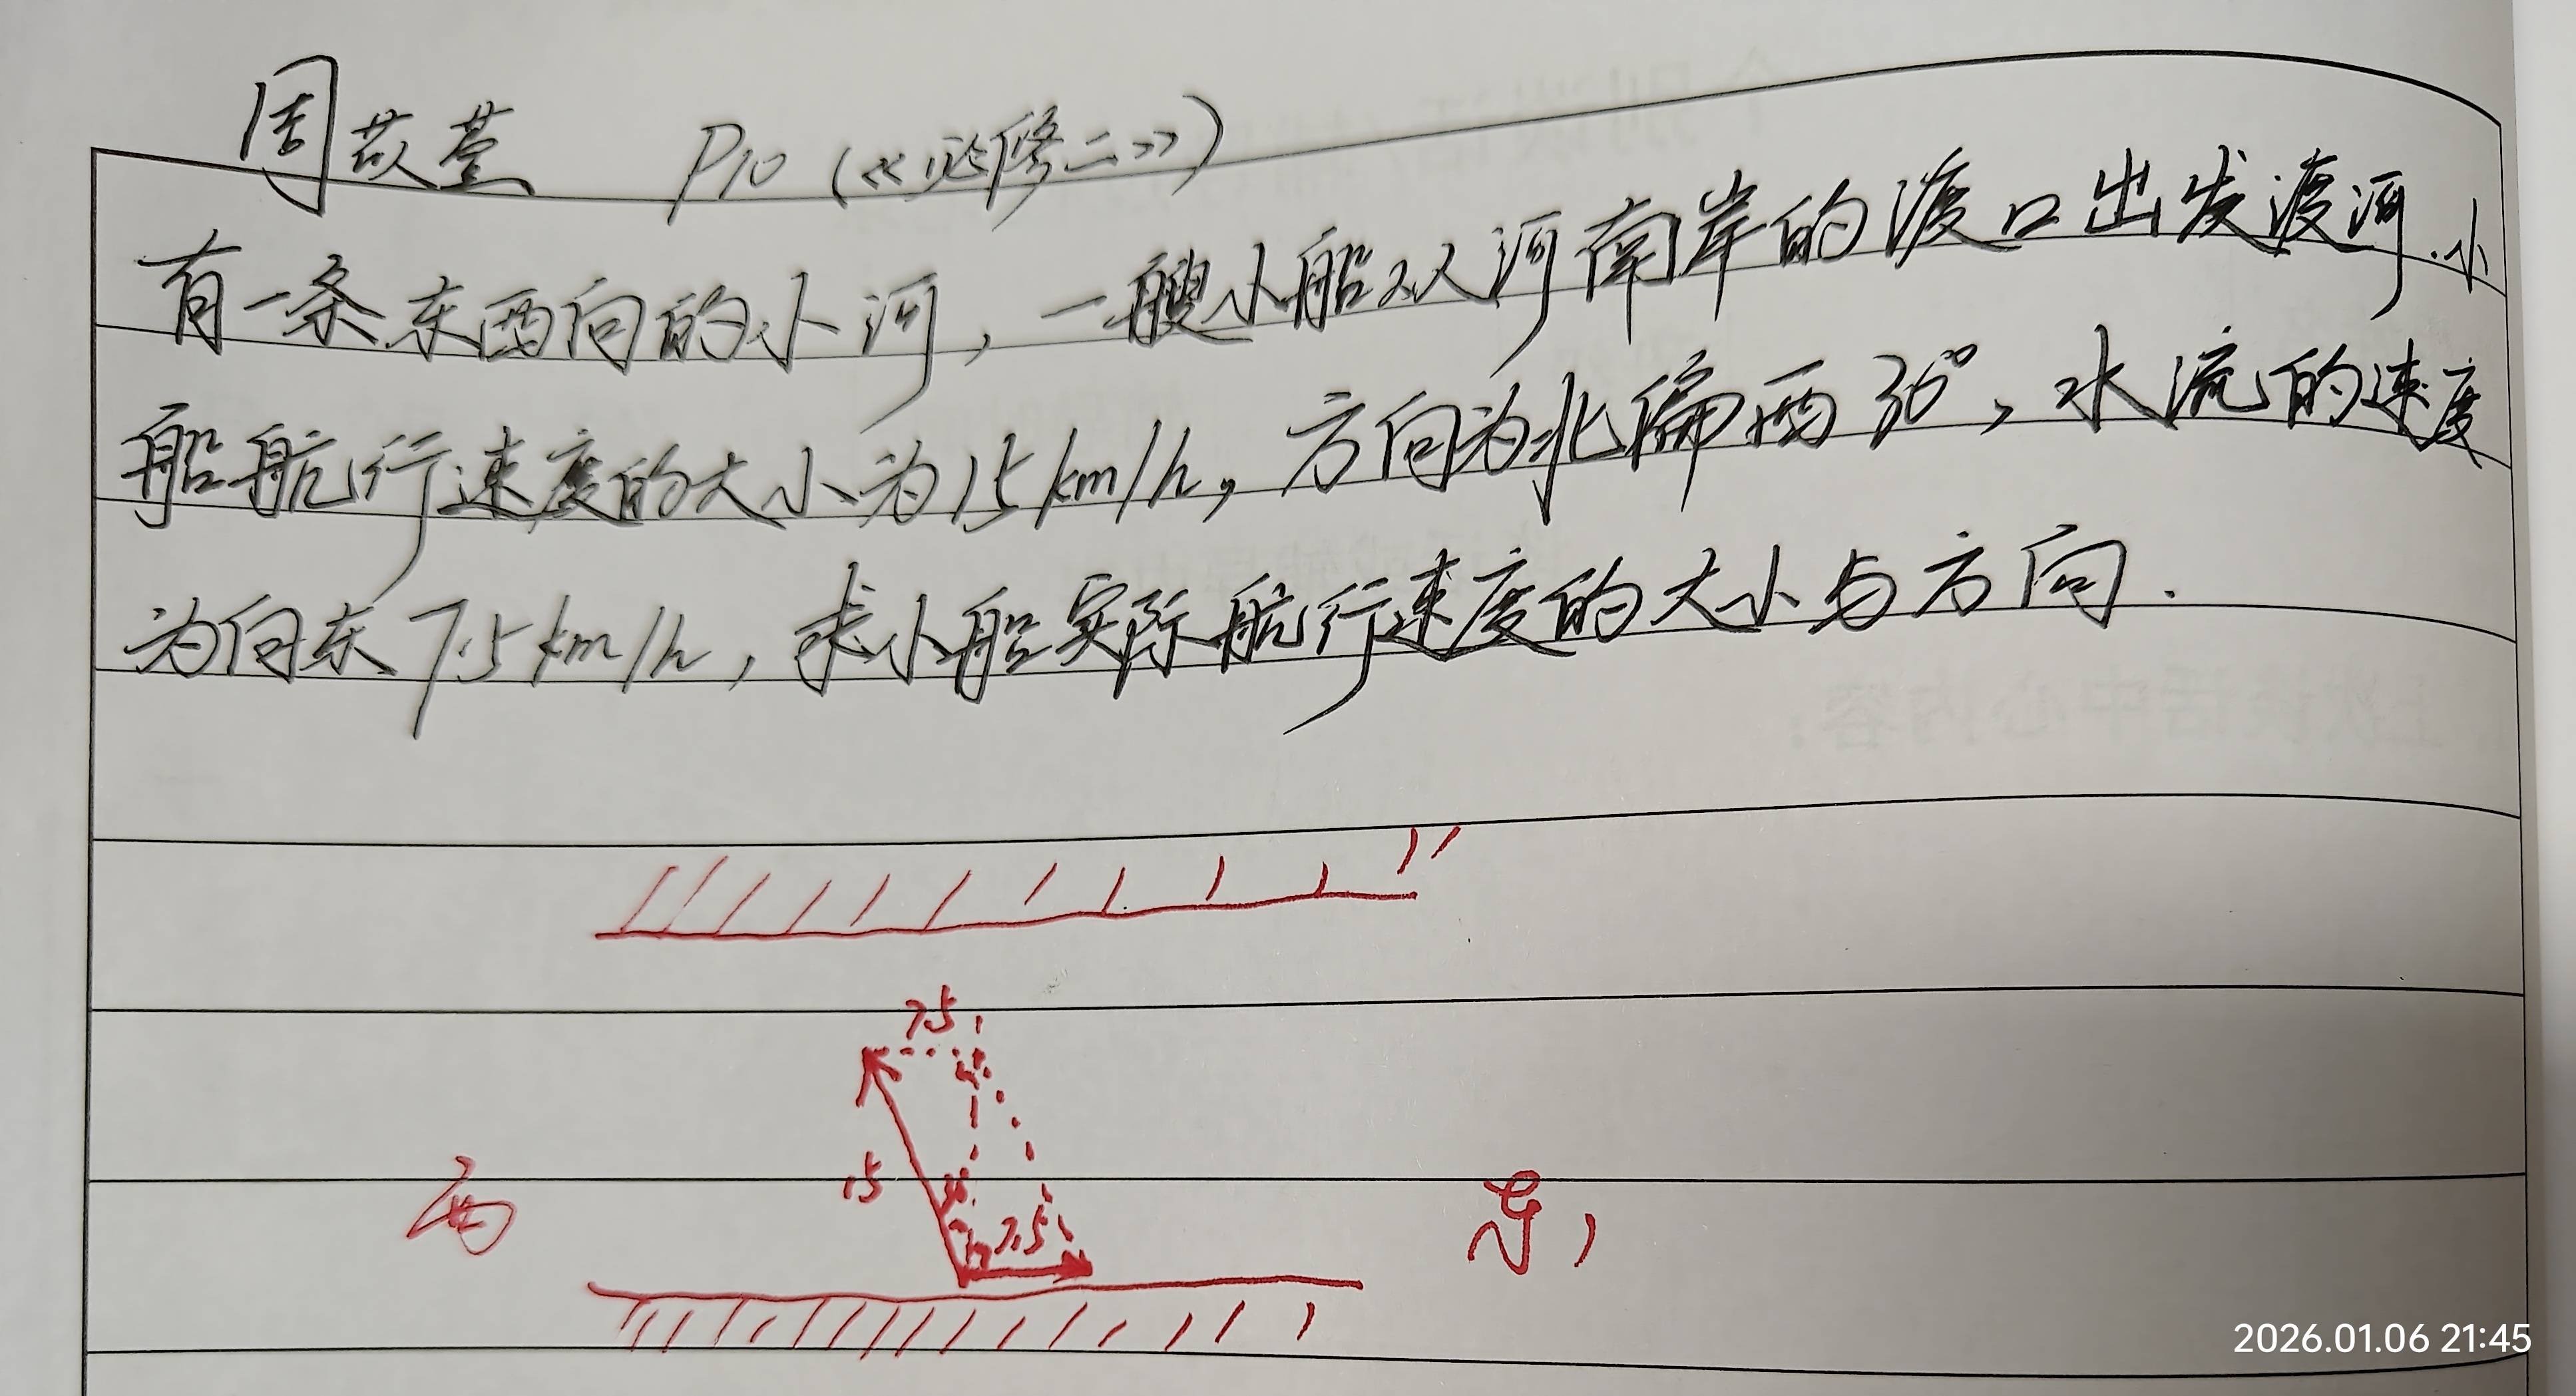 周苡萱 P10（《必修二》）
有一条东西向的小河，一艘小船从河南岸的渡口出发渡河.小
船航行速度的大小为15km/h，方向为北偏西30°，水流的速度
为向东7.5km/h，求小船实际航行速度的大小与方向.
7.5
15
30°
7.5
西
东
2026.01.06 21:45